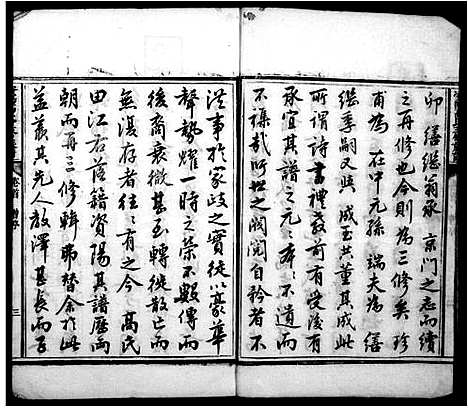 卯 繕繼翁承 京門之志而續
之再修也今則為三修矣 珍
甫為 在中元孫 端夫為 繕
繼季嗣又與 成玉共董其成此
所謂詩書禮教前有受後有
承宜其譜之元元本本不道而
不誣哉所世之閥閱自矜者不
從事於家歧之實徒以豪華
聲勢耀一時之榮不數傳而
後裔衰微甚至轉徙散亡而
無復存者往往有之今 高氏
由江右落籍資陽其譜歷兩
朝而再三修輯弗替余於此
益羨其先人教澤甚長而
卷首
三